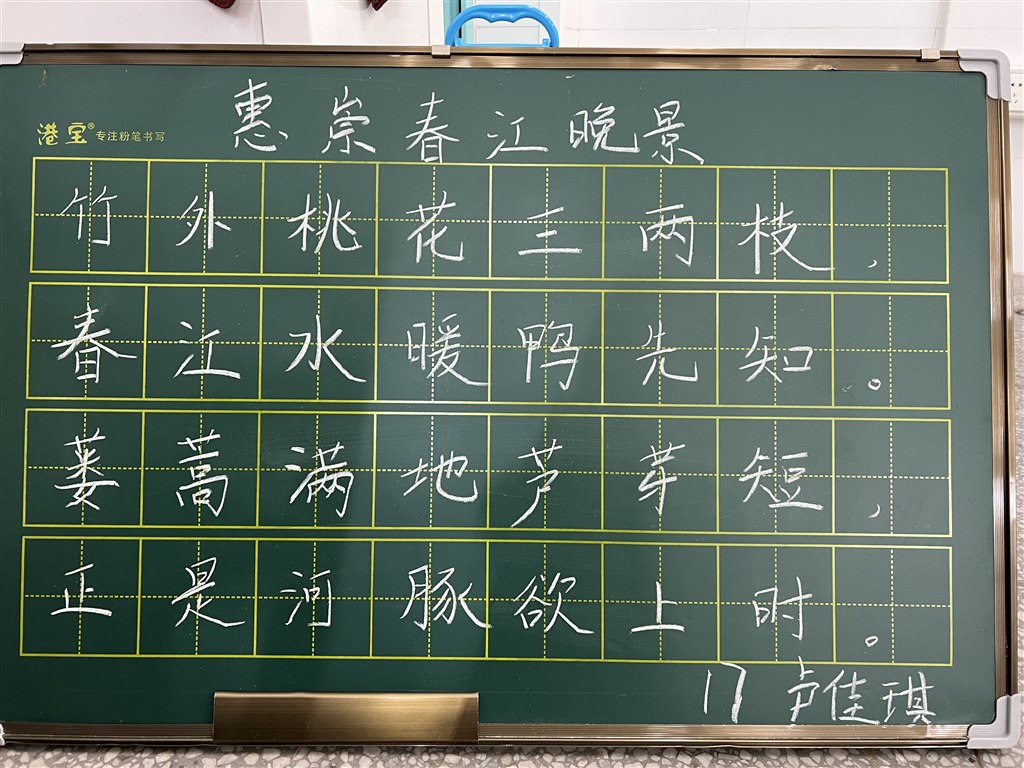 惠崇春江晚景
港宝® 专注粉笔书写
竹外桃花三两枝，
春江水暖鸭先知。
蒌蒿满地芦芽短，
正是河豚欲上时。
17 卢佳琪